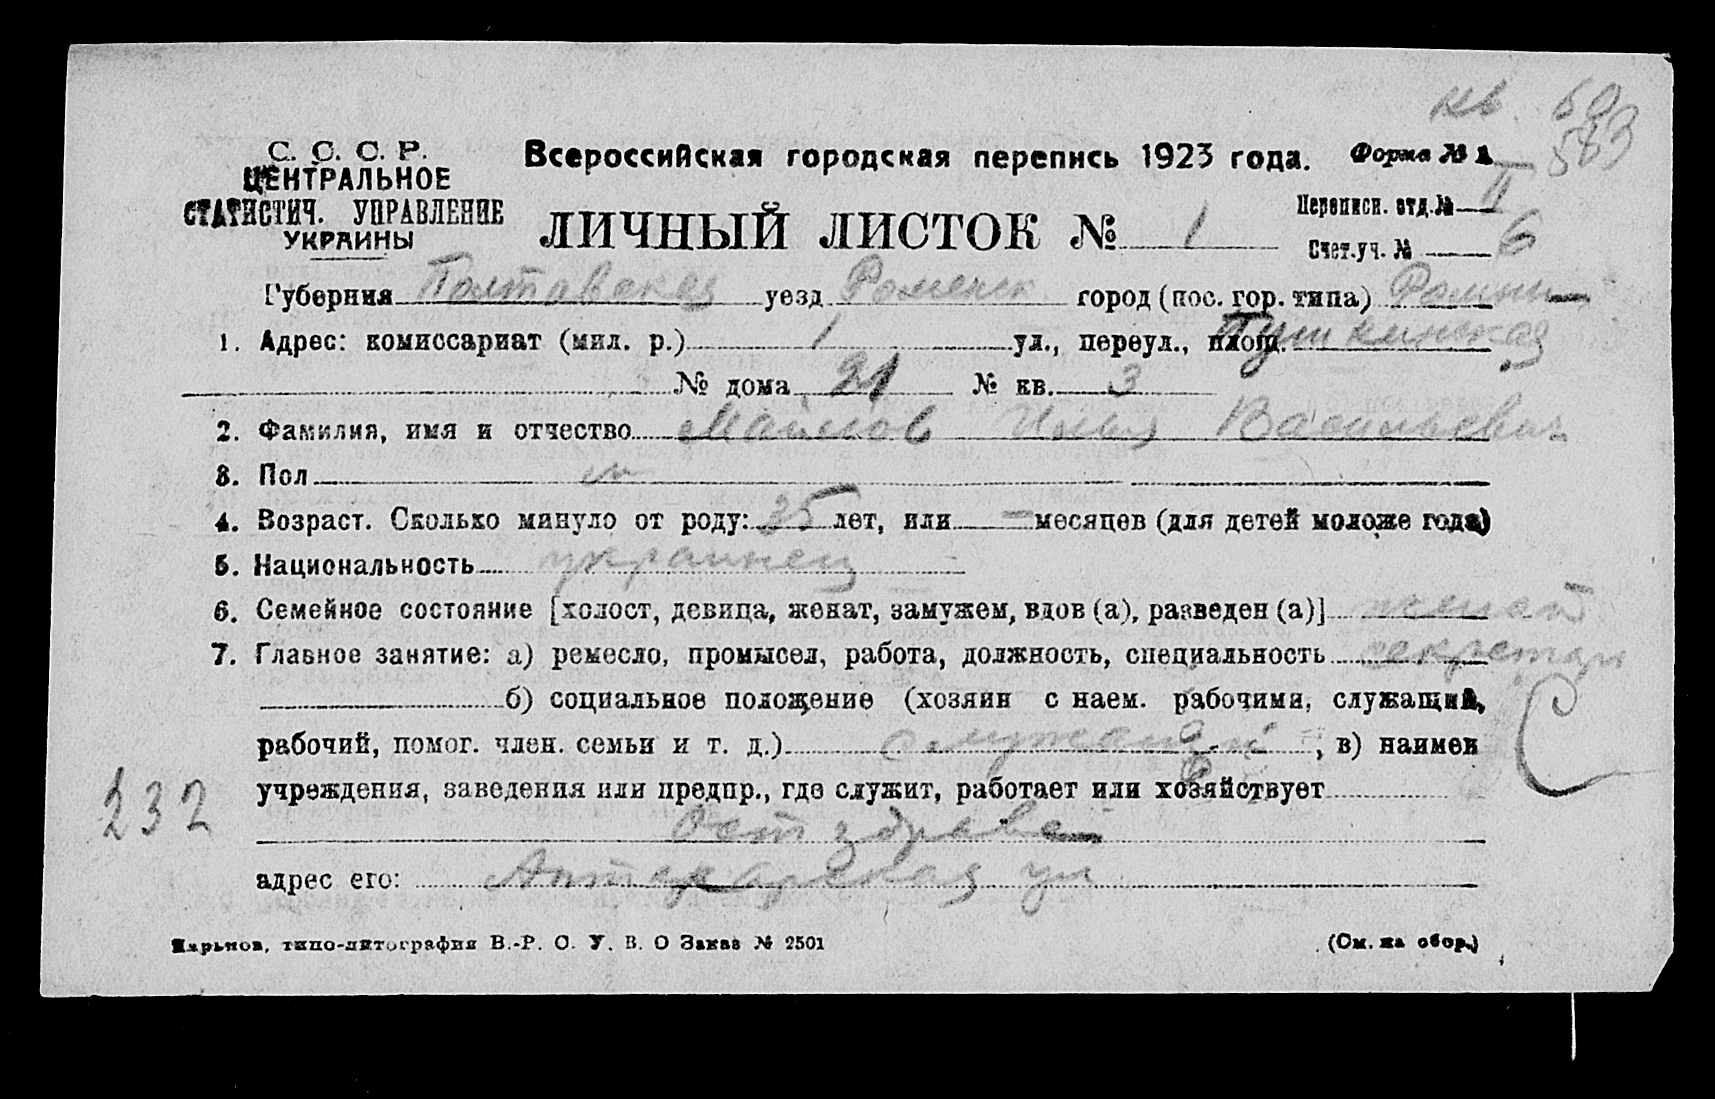 кв. 59
583
С. С. С. Р.
ЦЕНТРАЛЬНОЕ
СТАТИСТИЧ. УПРАВЛЕНИЕ
УКРАИНЫ
Всероссийская городская перепись 1923 года. Форма № 1
ЛИЧНЫЙ ЛИСТОК № 1
Переписн. отд. № II
Счет.уч. № 6
Губерния Полтавская уезд Роменск город (пос. гор. типа) Ромны
1. Адрес: комиссариат (мил. р.) 1 ул., переул., площ. Пушкинская
№ дома 21 № кв. 3
2. Фамилия, имя и отчество Илья Васильевич
3. Пол м
4. Возраст. Сколько минуло от роду: 35 лет, или — месяцев (для детей моложе года)
5. Национальность украинец
6. Семейное состояние [холост, девица, женат, замужем, вдов (а), разведен (а)] женат
7. Главное занятие: а) ремесло, промысел, работа, должность, специальность секретарь
б) социальное положение (хозяин с наем. рабочими, служащий,
рабочий, помог. член. семьи и т. д.) служащий, в) наимен
учреждения, заведения или предпр., где служит, работает или хозяйствует
С
232
адрес его: Аптекарская ул
Харьков, типо-литография В.-Р. С. У. В. О Заказ № 2501
(См. на обор.)